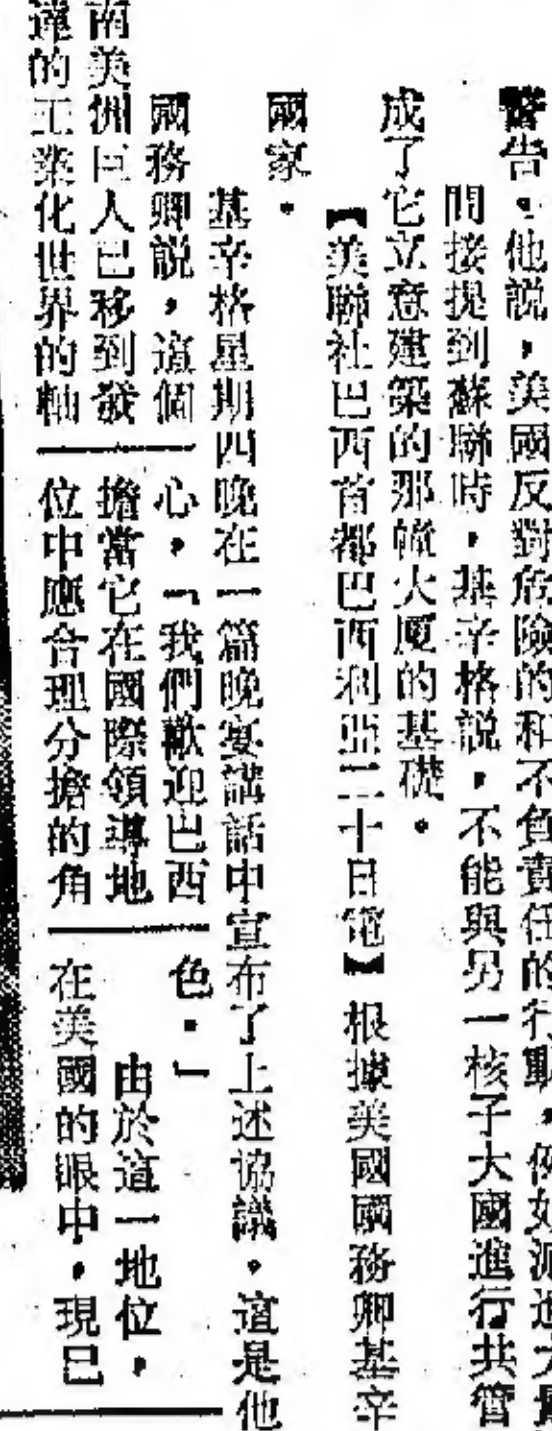 警告。他說，美國反對危險的和不負責任的行動，例如派遣大
間接提到蘇聯時，基辛格說，不能與另一核子大國進行共管
成了它立意建築的那幢大廈的基礎。
【美聯社巴西首都巴西利亞二十日電】根據美國國務卿基辛
國家。
基辛格星期四晚在一篇晚宴講話中宣布了上述協議。這是他
國務卿說，這個
南美洲巨人已移到發
達的工業化世界的軸
心，「我們歡迎巴西
擔當它在國際領導地
位中應合理分擔的角
色。」
由於這一地位，
在美國的眼中，現已